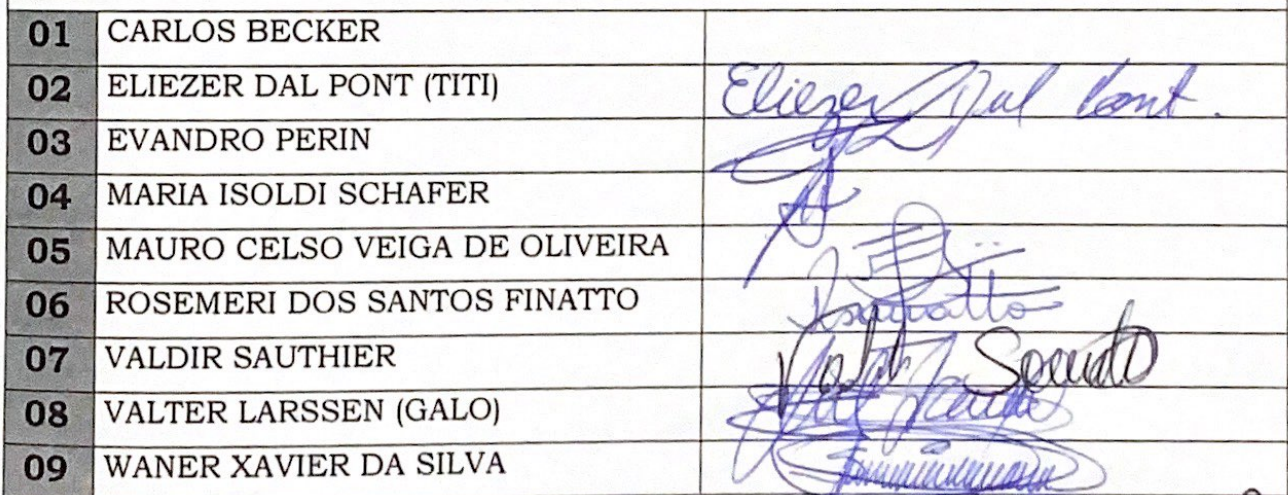 01 CARLOS BECKER
02 ELIEZER DAL PONT (TITI) Eliezer Dal Pont.
03 EVANDRO PERIN
04 MARIA ISOLDI SCHAFER
05 MAURO CELSO VEIGA DE OLIVEIRA
06 ROSEMERI DOS SANTOS FINATTO
07 VALDIR SAUTHIER
08 VALTER LARSSEN (GALO)
09 WANER XAVIER DA SILVA